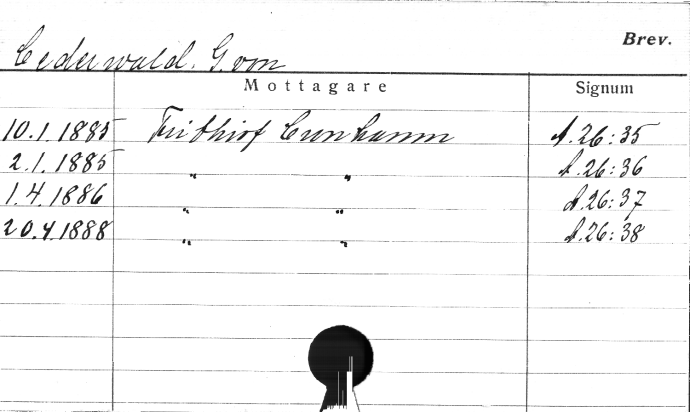 Brev.
Cederwald. G. von
Mottagare Signum
10.1.1885 Frithiof Cronhamn A.26:35
2.1.1885 " " A.26:36
1.4.1886 " " A.26:37
20.4.1888 " " A.26:38